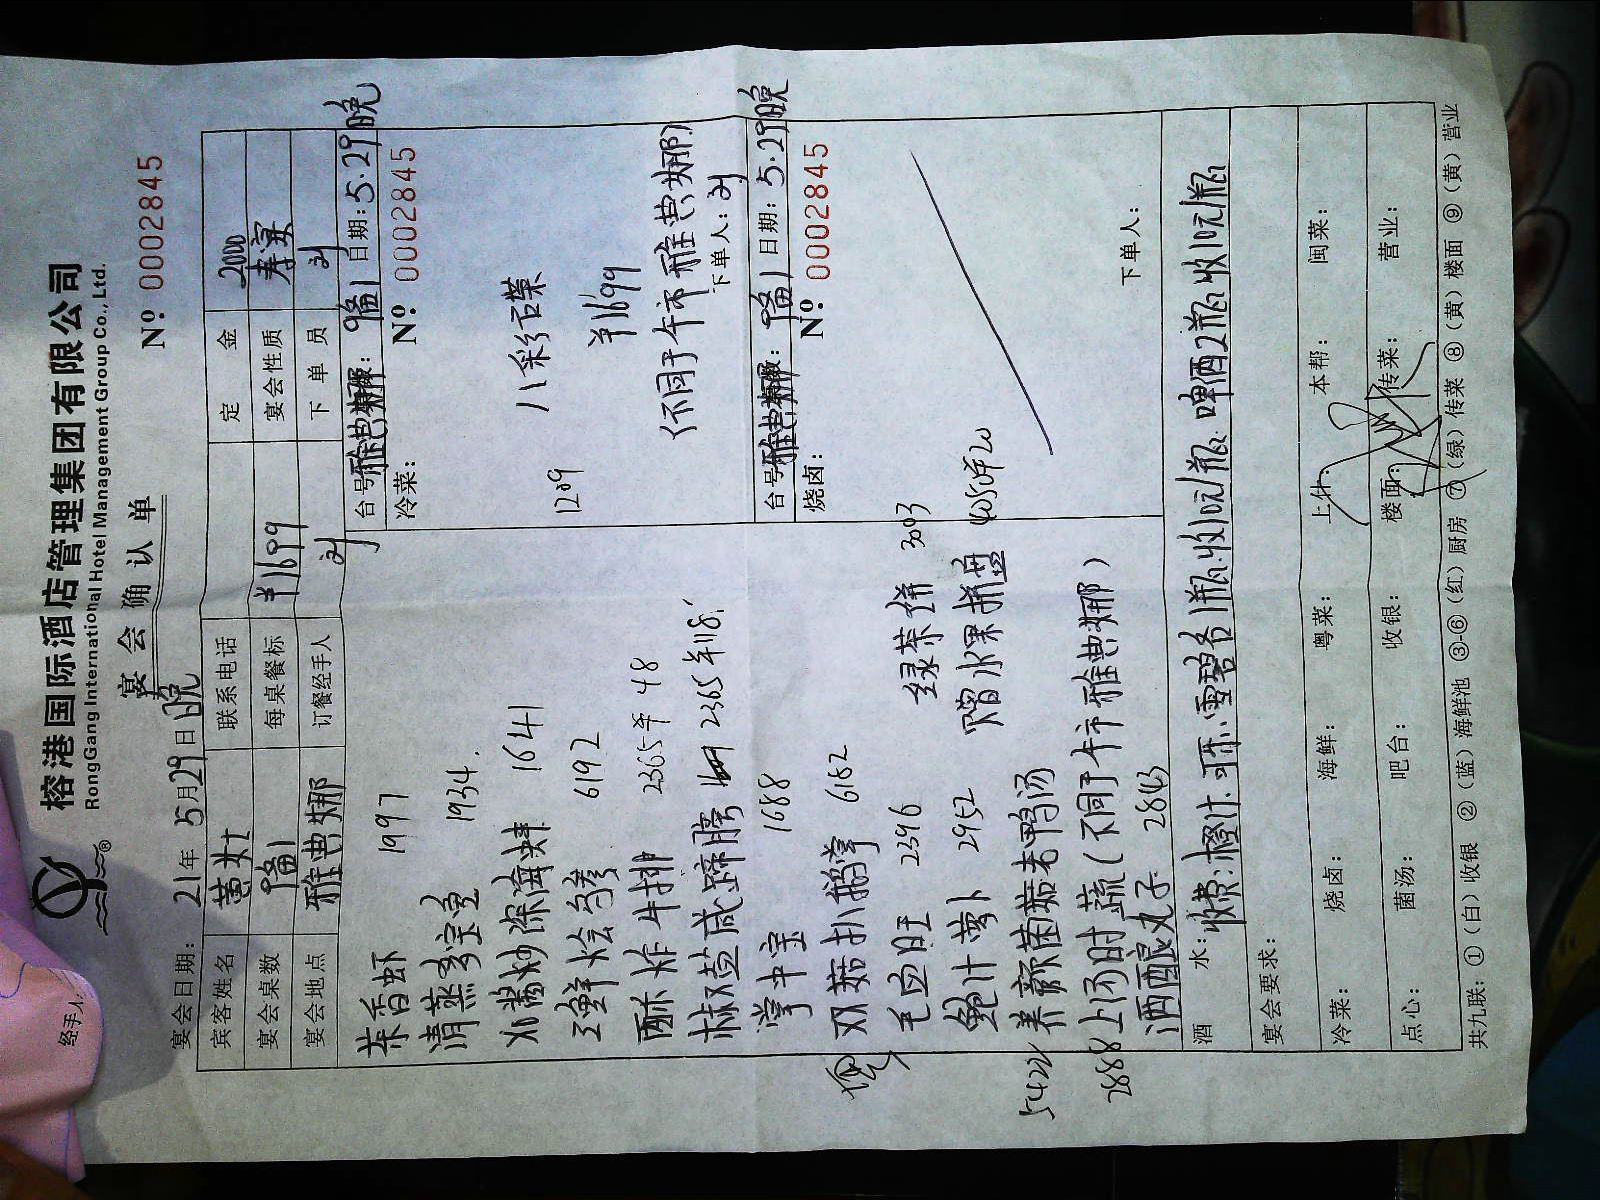 榕港国际酒店管理集团有限公司
RongGang International Hotel Management Group Co., Ltd.
宴会确认单
№ 0002845
宴会日期： 21年 5月29日 晚
宾客姓名
联系电话
定金 2000
宴会桌数
每桌餐标 ¥1699
宴会性质 寿宴
宴会地点 雅典娜
订餐经手人
下单员
茶香虾 1997
清蒸多宝鱼 1934
1641
三鲜烩乌参 6192
酥炸牛排 2365
椒盐咸蹄膀 2365
掌中宝 1688
双菇扒鹅掌 6182
毛血旺 2396
鲍汁萝卜 2952
5422 养颜菌菇老鸭汤
2888 上汤时蔬（不同于午市雅典娜）
酒酿丸子 2843
绿茶饼 3003
赠水果拼盘
台号 雅典娜 日期：5.29晚
冷菜：
№ 0002845
1209
八彩石碟
¥1699
（不同于午市雅典娜）
下单人：
台号 雅典娜 日期：5.29晚
烧卤：
№ 0002845
下单人：
酒水： 收费：橙汁.可乐.雪碧各1瓶收10元/瓶 啤酒2瓶收10元/瓶
宴会要求：
冷菜： 烧卤： 海鲜： 粤菜： 上什： 本帮： 闽菜：
点心： 菌汤： 吧台： 收银： 楼面： 传菜： 营业：
共九联：①（白）收银 ②（蓝）海鲜池 ③-⑥（红）厨房 ⑦（绿）传菜 ⑧（黄）楼面 ⑨（黄）营业
经手人